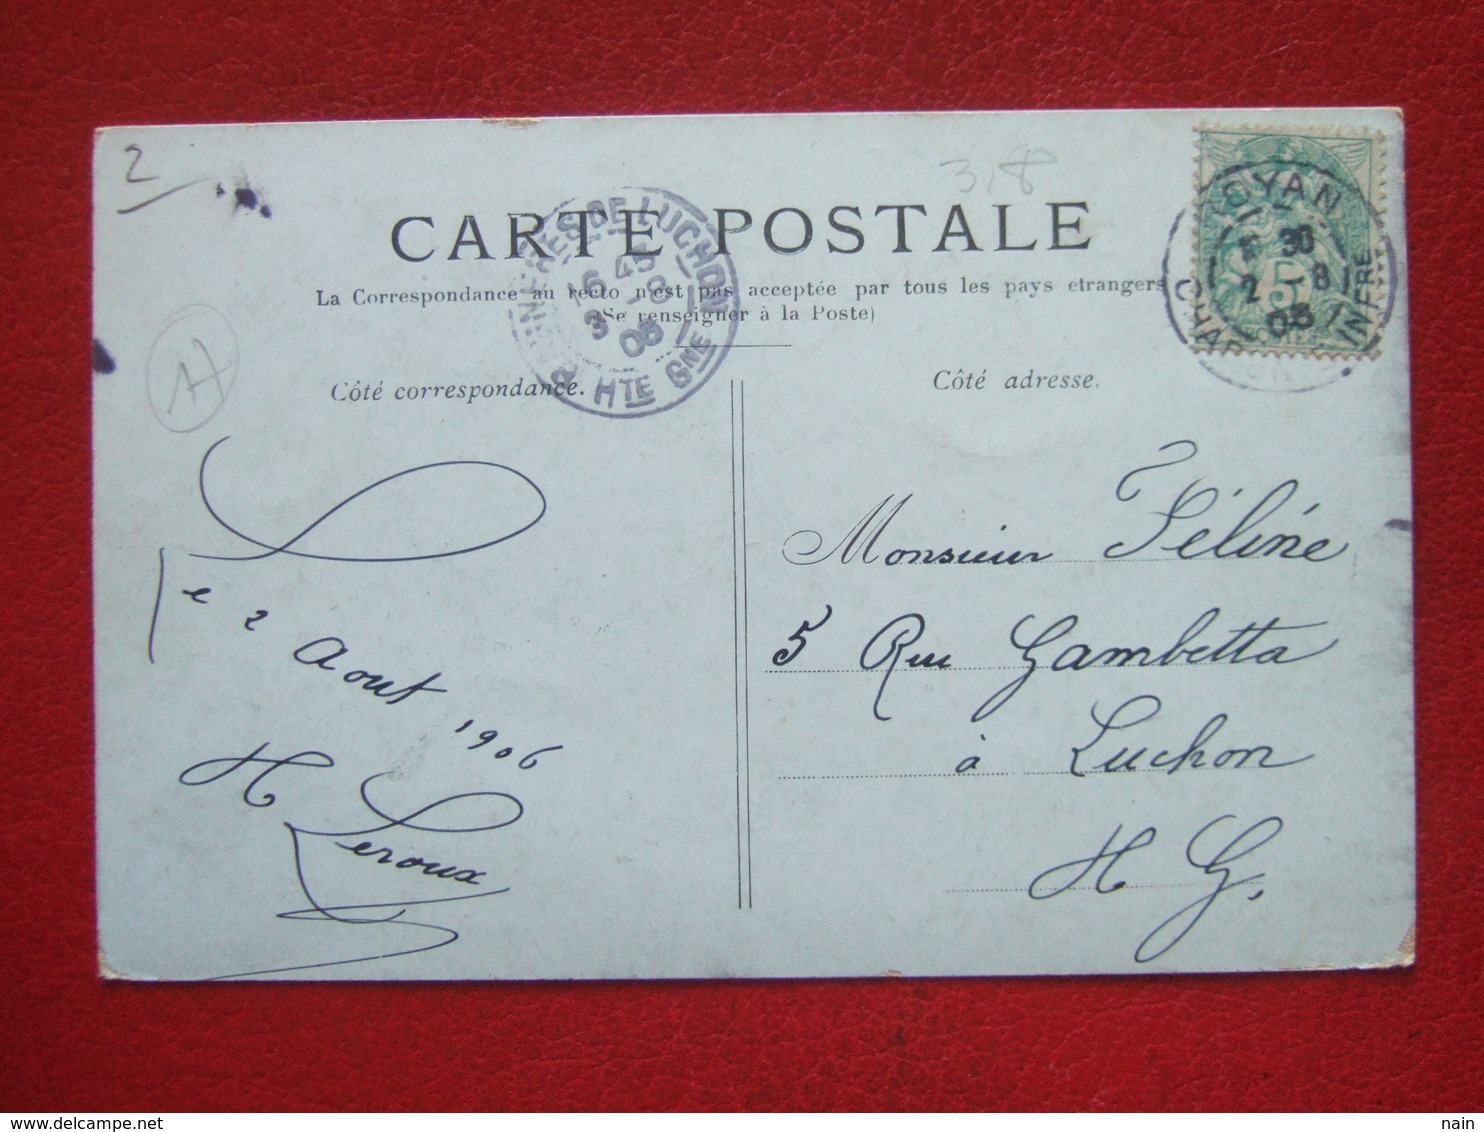 2
318
CARTE POSTALE
La Correspondance au recto n'est pas acceptée par tous les pays étrangers
(Se renseigner à la Poste)
ROYAN
30
2 - 8
06
INFRE
5
DE LUCHON
6 45
3 - 8
06
HTE GNE
Côté correspondance.
Côté adresse.
Le 2 Aout 1906
H Leroux
Monsieur Féline
5 Rue Gambetta
à Luchon
H G.
nain